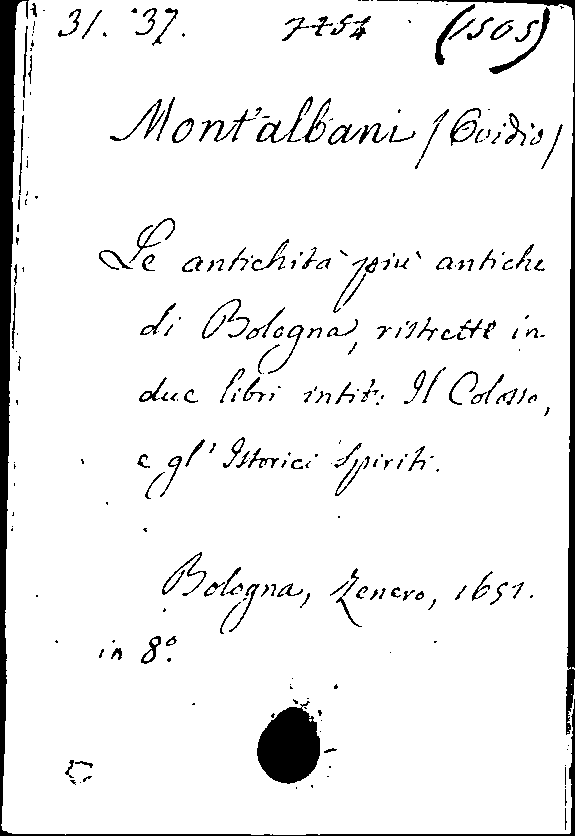 31. 37. (1505)
Montalbani (Ovidio)
Le antichità più antiche
di Bologna, ristrette in
due libri intit: Il Colosso,
e gl' Istorici Spiriti.
Bologna, Zenero, 1651.
in 8º.